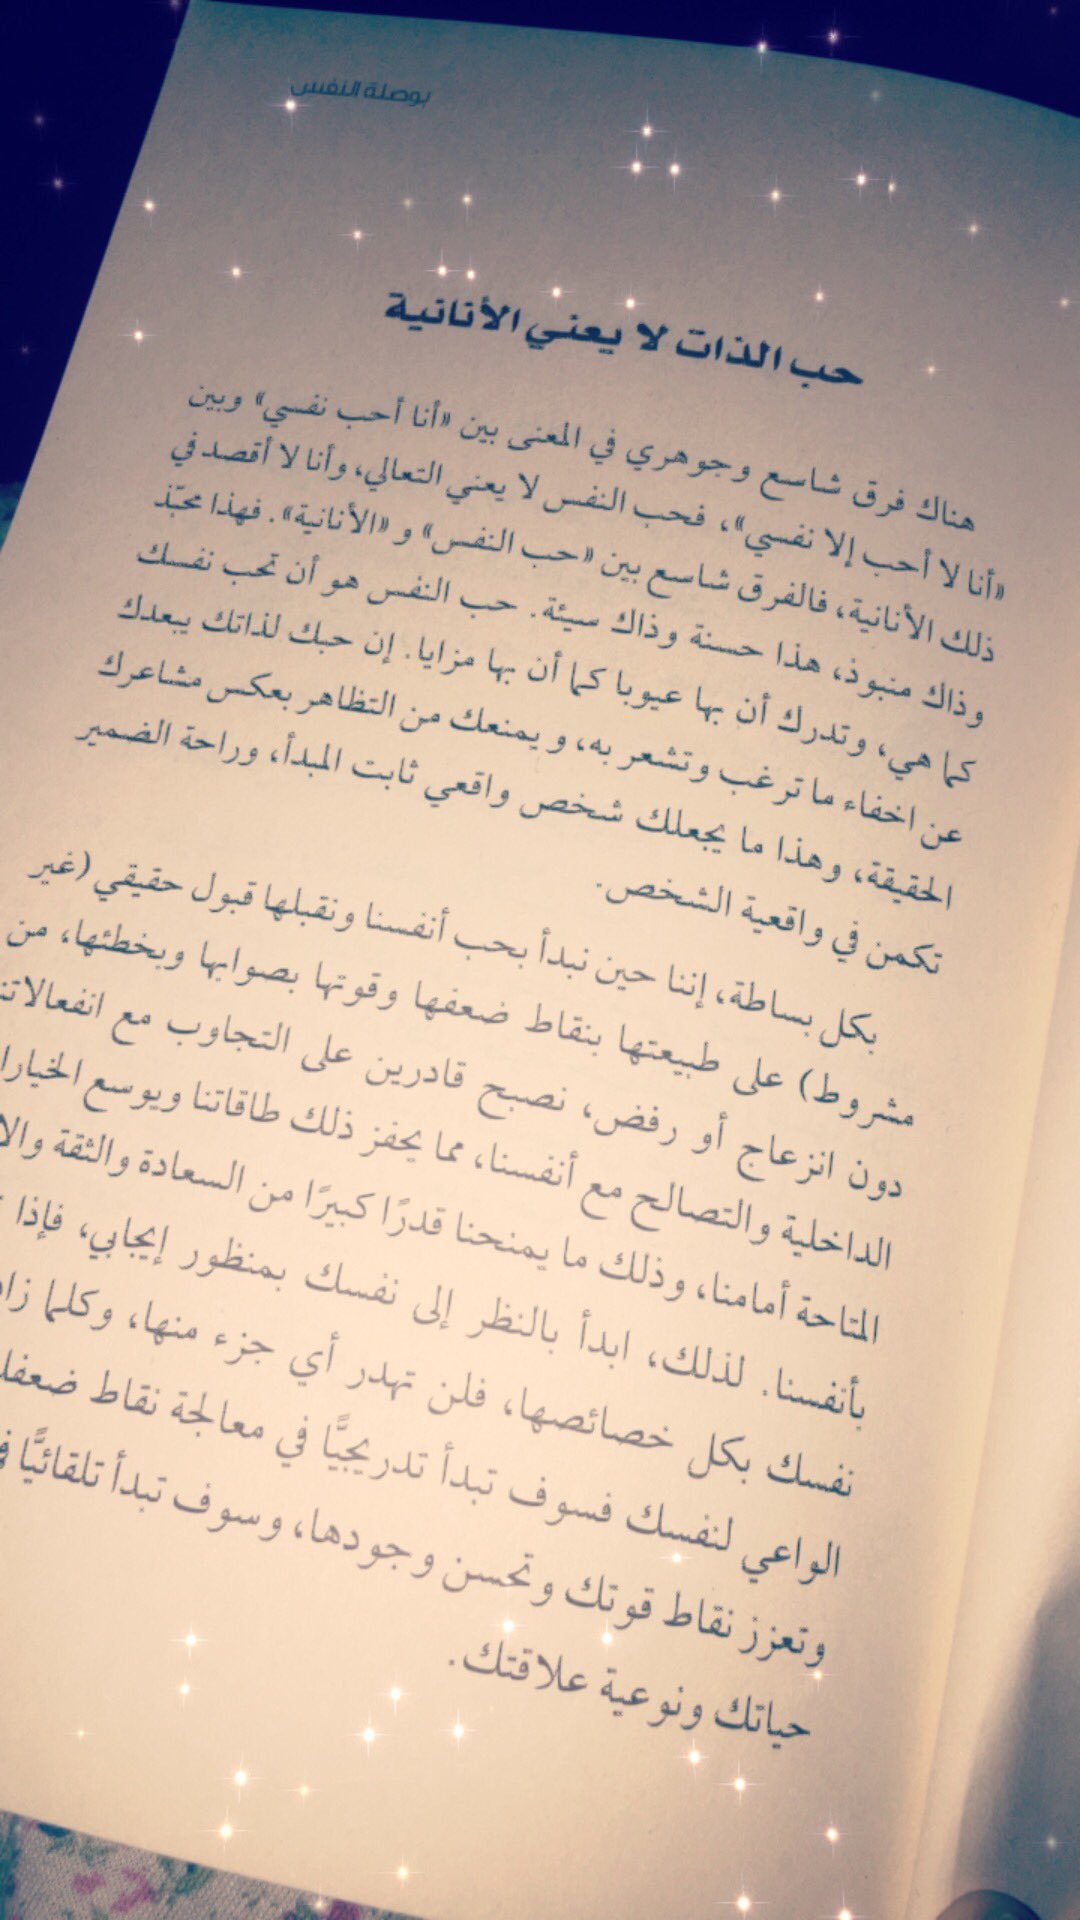 بوصلة النفس
حب الذات لا يعني الأنانية
هناك فرق شاسع وجوهري في المعنى بين «أنا أحب نفسي» وبين
«أنا لا أحب إلا نفسي»، فحب النفس لا يعني التعالي، وأنا لا أقصد في
ذلك الأنانية، فالفرق شاسع بين «حب النفس» و «الأنانية». فهذا محبّذ
وذاك منبوذ، هذا حسنة وذاك سيئة. حب النفس هو أن تحب نفسك
كما هي، وتدرك أن بها عيوبا كما أن بها مزايا. إن حبك لذاتك يبعدك
عن اخفاء ما ترغب وتشعر به، ويمنعك من التظاهر بعكس مشاعرك
الحقيقة، وهذا ما يجعلك شخص واقعي ثابت المبدأ، وراحة الضمير
تكمن في واقعية الشخص.
بكل بساطة، إننا حين نبدأ بحب أنفسنا ونقبلها قبول حقيقي (غير
مشروط) على طبيعتها بنقاط ضعفها وقوتها بصوابها وبخطئها، من
دون انزعاج أو رفض، نصبح قادرين على التجاوب مع
الداخلية والتصالح مع أنفسنا، مما يحفز ذلك طاقاتنا ويوسع
المتاحة أمامنا، وذلك ما يمنحنا قدرًا كبيرًا من السعادة والثقة
بأنفسنا. لذلك، ابدأ بالنظر إلى نفسك بمنظور إيجابي، فإذا
نفسك بكل خصائصها، فلن تهدر أي جزء منها، وكلما
الواعي لنفسك فسوف تبدأ تدريجيًّا في معالجة نقاط
وتعزز نقاط قوتك وتحسن وجودها، وسوف تبدأ تلقائيًّا
حياتك ونوعية علاقتك.